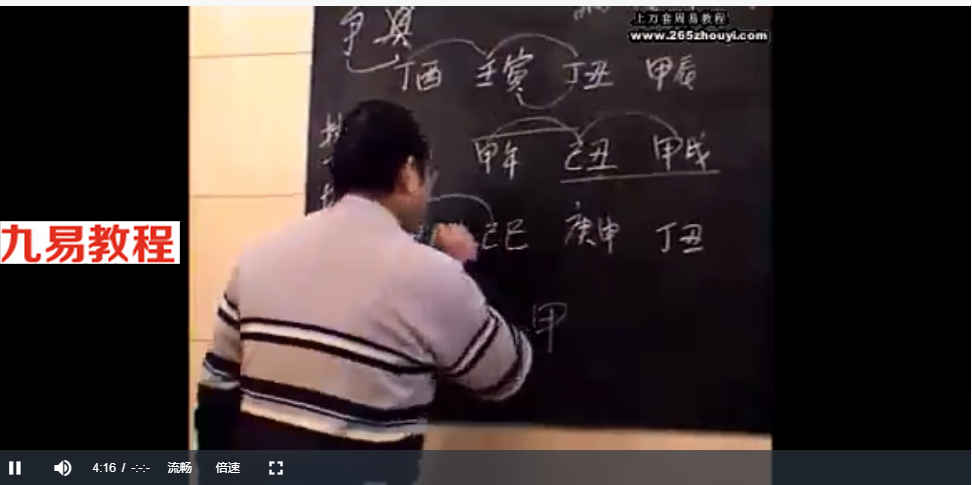 上万套周易教程
www.265zhouyi.com
争
丁酉 壬寅 丁丑 甲辰
甲午 己丑 甲戌
己巳 庚申 丁丑
甲
九易教程
4:16 / -:-:- 流畅 倍速